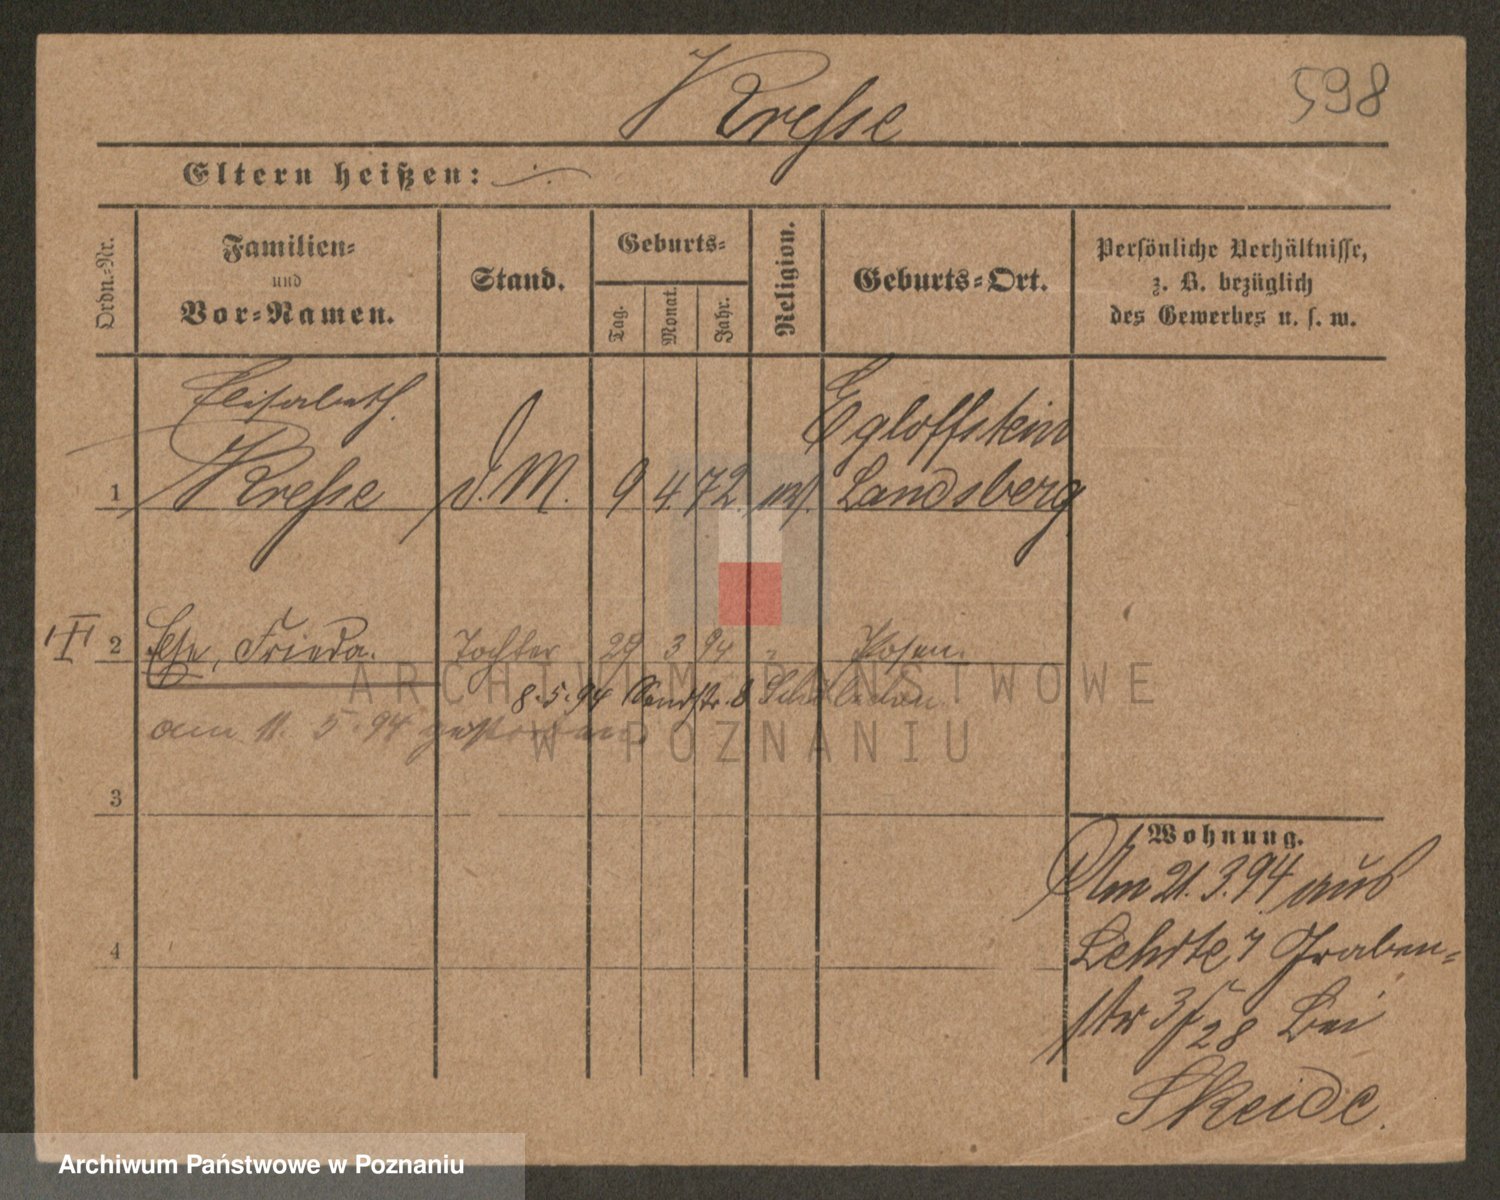 Kresse
598
Eltern heißen: ./.
Ordn.=Nr.
Familien=
und
Vor=Namen.
Stand.
Geburts=
Tag.
Monat.
Jahr.
Religion.
Geburts=Ort.
Persönliche Verhältnisse,
z. B. bezüglich
des Gewerbes u. s. w.
Elisabeth
1 Kresse d. M. 9 4. 72. Egloffstein Landsberg
2 Frieda. Tochter 29 3 94 " Posen.
8.5.94
am 11. 5. 94 gestorben.
3
4
Wohnung.
Am 21.3.94 aus
Lehrte, Graben=
str 3/28 bei
Skeide.
ARCHIWUM PAŃSTWOWE
W POZNANIU
Archiwum Państwowe w Poznaniu